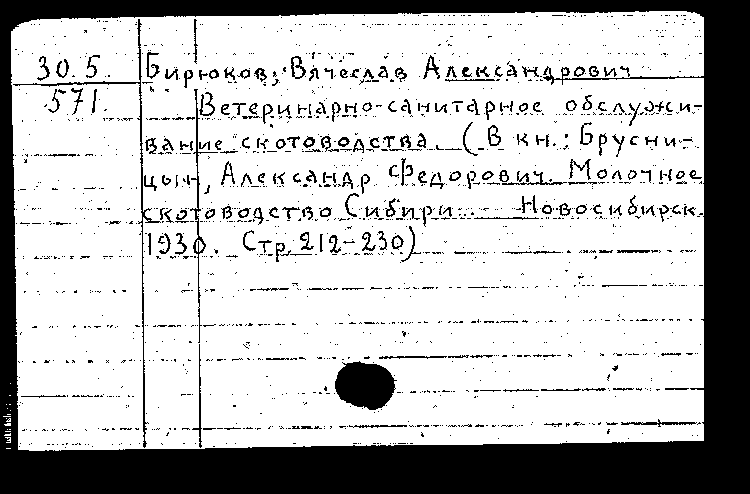 30.5.
571.
Бирюков, Вячеслав Александрович
Ветеринарно-санитарное обслужи-
вание скотоводства. (В кн.: Брусни-
цын, Александр Федорович. Молочное
скотоводство Сибири. - Новосибирск.
1930. Стр. 212-230)